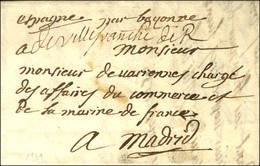 espagne par bayonne
a de villefranche de R
Monsieur
monsieur de varennes chargé
des affaires du commerce et
de la marine de france
a Madrid